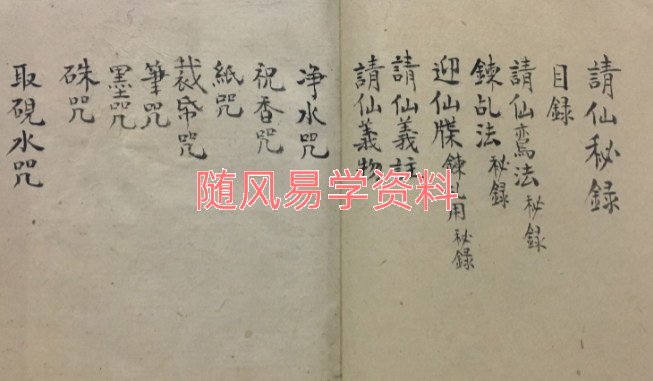 請仙秘録
目録
請仙鸞法秘録
鍊乩法秘録
迎仙牒鍊乩用秘録
請仙義註
請仙義物
净水咒
祝香咒
紙咒
裁帋咒
筆咒
墨咒
硃咒
取硯水咒
随风易学资料